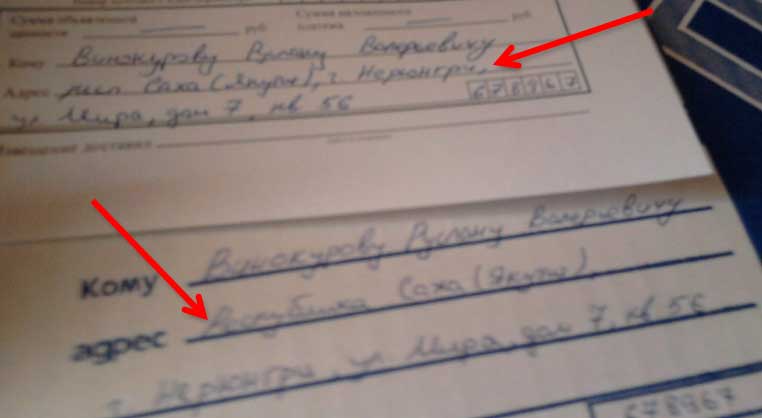 Сумма объявленной ценности руб. Сумма наложенного платежа руб.
Кому Винокурову Руслану Валерьевичу
Адрес респ Саха (Якутия), г. Нерюнгри,
678967
ул Мира, дом 7, кв 56
Кому Винокурову Руслану Валерьевичу
адрес Республика Саха (Якутия),
г. Нерюнгри, ул. Мира, дом 7, кв 56
678967